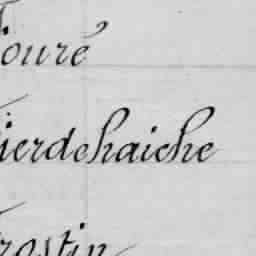 ouré
ierdchaiche
rostin